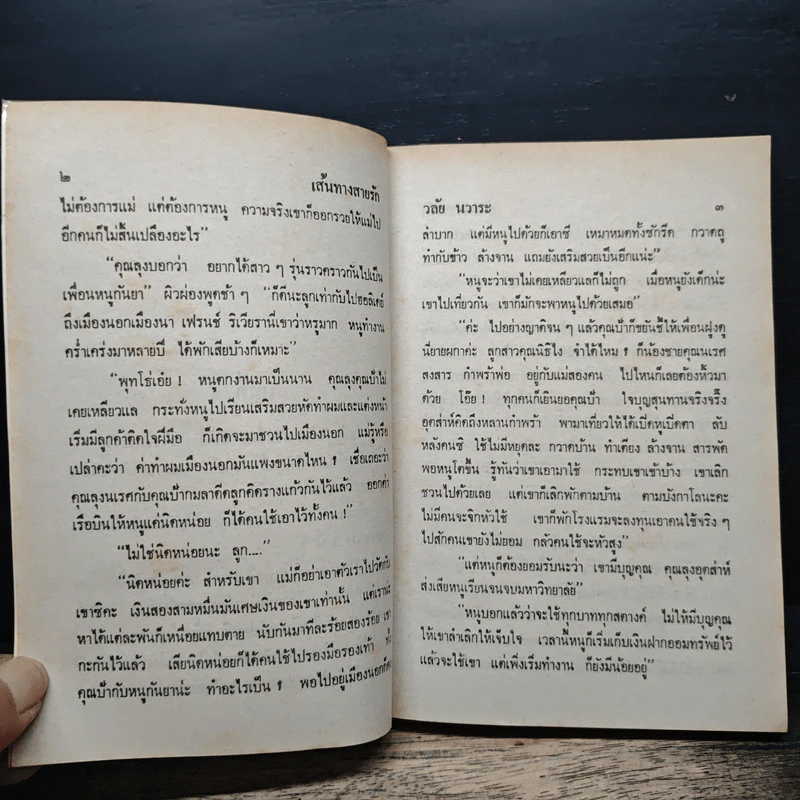 ๒
เส้นทางสายรัก
ไม่ต้องการแม่ แต่ต้องการหนู ความจริงเขาก็ออกรวยให้แม่ไป
อีกคนก็ไม่สิ้นเปลืองอะไร”
“คุณลุงบอกว่า อยากได้สาว ๆ รุ่นราวคราวกันไปเป็น
เพื่อนหนูกันยา” ผิวผ่องพูดช้า ๆ “ก็ดีนะลูกเท่ากับไปฮอลเดย์
ถึงเมืองนอกเมืองนา เฟรนช์ ริเวียรานี่เขาว่าหรูมาก หนูทำงาน
คร่ำเคร่งมาหลายปี ได้พักเสียบ้างก็เหมาะ”
“พุทโธ่เอ๋ย! หนูตกงานมาเป็นนาน คุณลุงคุณป้าไม่
เคยเหลียวแล กระทั่งหนูไปเรียนเสริมสวยหัดทำผมและแต่งหน้า
เริ่มมีลูกค้าติดใจฝีมือ ก็เกิดจะมาชวนไปเมืองนอก แม่รู้หรือ
เปล่าคะว่า ค่าทำผมเมืองนอกมันแพงขนาดไหน? เชื่อเถอะว่า
คุณลุงนเรศกับคุณป้ากมลาดีดลูกคิดรางแก้วกันไว้แล้ว ออกค่า
เรือบินให้หนูแค่นิดหน่อย ก็ได้คนใช้เอาไว้ทั้งคน!”
“ไม่ใช่นิดหน่อยนะ ลูก....”
“นิดหน่อยค่ะ สำหรับเขา แม่ก็อย่าเอาตัวเราไปวัดกับ
เขาซิคะ เงินสองสามหมื่นมันเศษเงินของเขาเท่านั้น แต่เราน่ะ
หาได้แต่ละพันก็เหนื่อยแทบตาย นับกันมาทีละร้อยสองร้อย เขา
กะกันไว้แล้ว เสียนิดหน่อยก็ได้คนใช้ไปรองมือรองเท้า ทั้ง
คุณป้ากับหนูกันยาน่ะ ทำอะไรเป็น? พอไปอยู่เมืองนอกก็คง
วลัย นวาระ
๓
ลำบาก แต่มีหนูไปด้วยก็เอาซี เหมาหมดทั้งซักรีด กวาดถู
ทำกับข้าว ล้างจาน แถมยังเสริมสวยเป็นอีกแน่ะ”
“หนูจะว่าเขาไม่เคยเหลียวแลก็ไม่ถูก เมื่อหนูยังเด็กน่ะ
เขาไปเที่ยวกัน เขาก็มักจะพาหนูไปด้วยเสมอ”
“ค่ะ ไปอย่างญาติจน ๆ แล้วคุณป้าก็ขยันชี้ให้เพื่อนฝูงดู
นี่ยายผกาค่ะ ลูกสาวคุณนิธิไง จำได้ไหม? ก็น้องชายคุณนเรศ
สงสาร กำพร้าพ่อ อยู่กับแม่สองคน ไปไหนก็เลยต้องหิ้วมา
ด้วย โอ๊ย! ทุกคนก็เย้นยอคุณป้า ใจบุญสุนทานจริงจริ๊ง
อุตส่าห์คิดถึงหลานกำพร้า พามาเที่ยวให้ได้เปิดหูเปิดตา ลับ
หลังคนซิ ใช้ไม่มีหยุดละ กวาดบ้าน ทำเตียง ล้างจาน สารพัด
พอหนูโตขึ้น รู้ทันว่าเขาเอามาใช้ กระทบเขาเข้าบ้าง เขาเลิก
ชวนไปด้วยเลย แต่เขาก็เลิกพักตามบ้าน ตามบังกาโลนะคะ
ไม่มีคนจะจิกหัวใช้ เขาก็พักโรงแรมจะลงทุนเอาคนใช้จริง ๆ
ไปสักคนเขายังไม่ยอม กลัวคนใช้จะหัวสูง”
“แต่หนูก็ต้องยอมรับนะว่า เขามีบุญคุณ คุณลุงอุตส่าห์
ส่งเสียหนูเรียนจนจบมหาวิทยาลัย”
“หนูบอกแล้วว่าจะใช้ทุกบาททุกสตางค์ ไม่ให้มีบุญคุณ
ให้เขาลำเลิกให้เจ็บใจ เวลานี้หนูก็เริ่มเก็บเงินฝากออมทรัพย์ไว้
แล้วจะใช้เขา แต่เพิ่งเริ่มทำงาน ก็ยังมีน้อยอยู่”